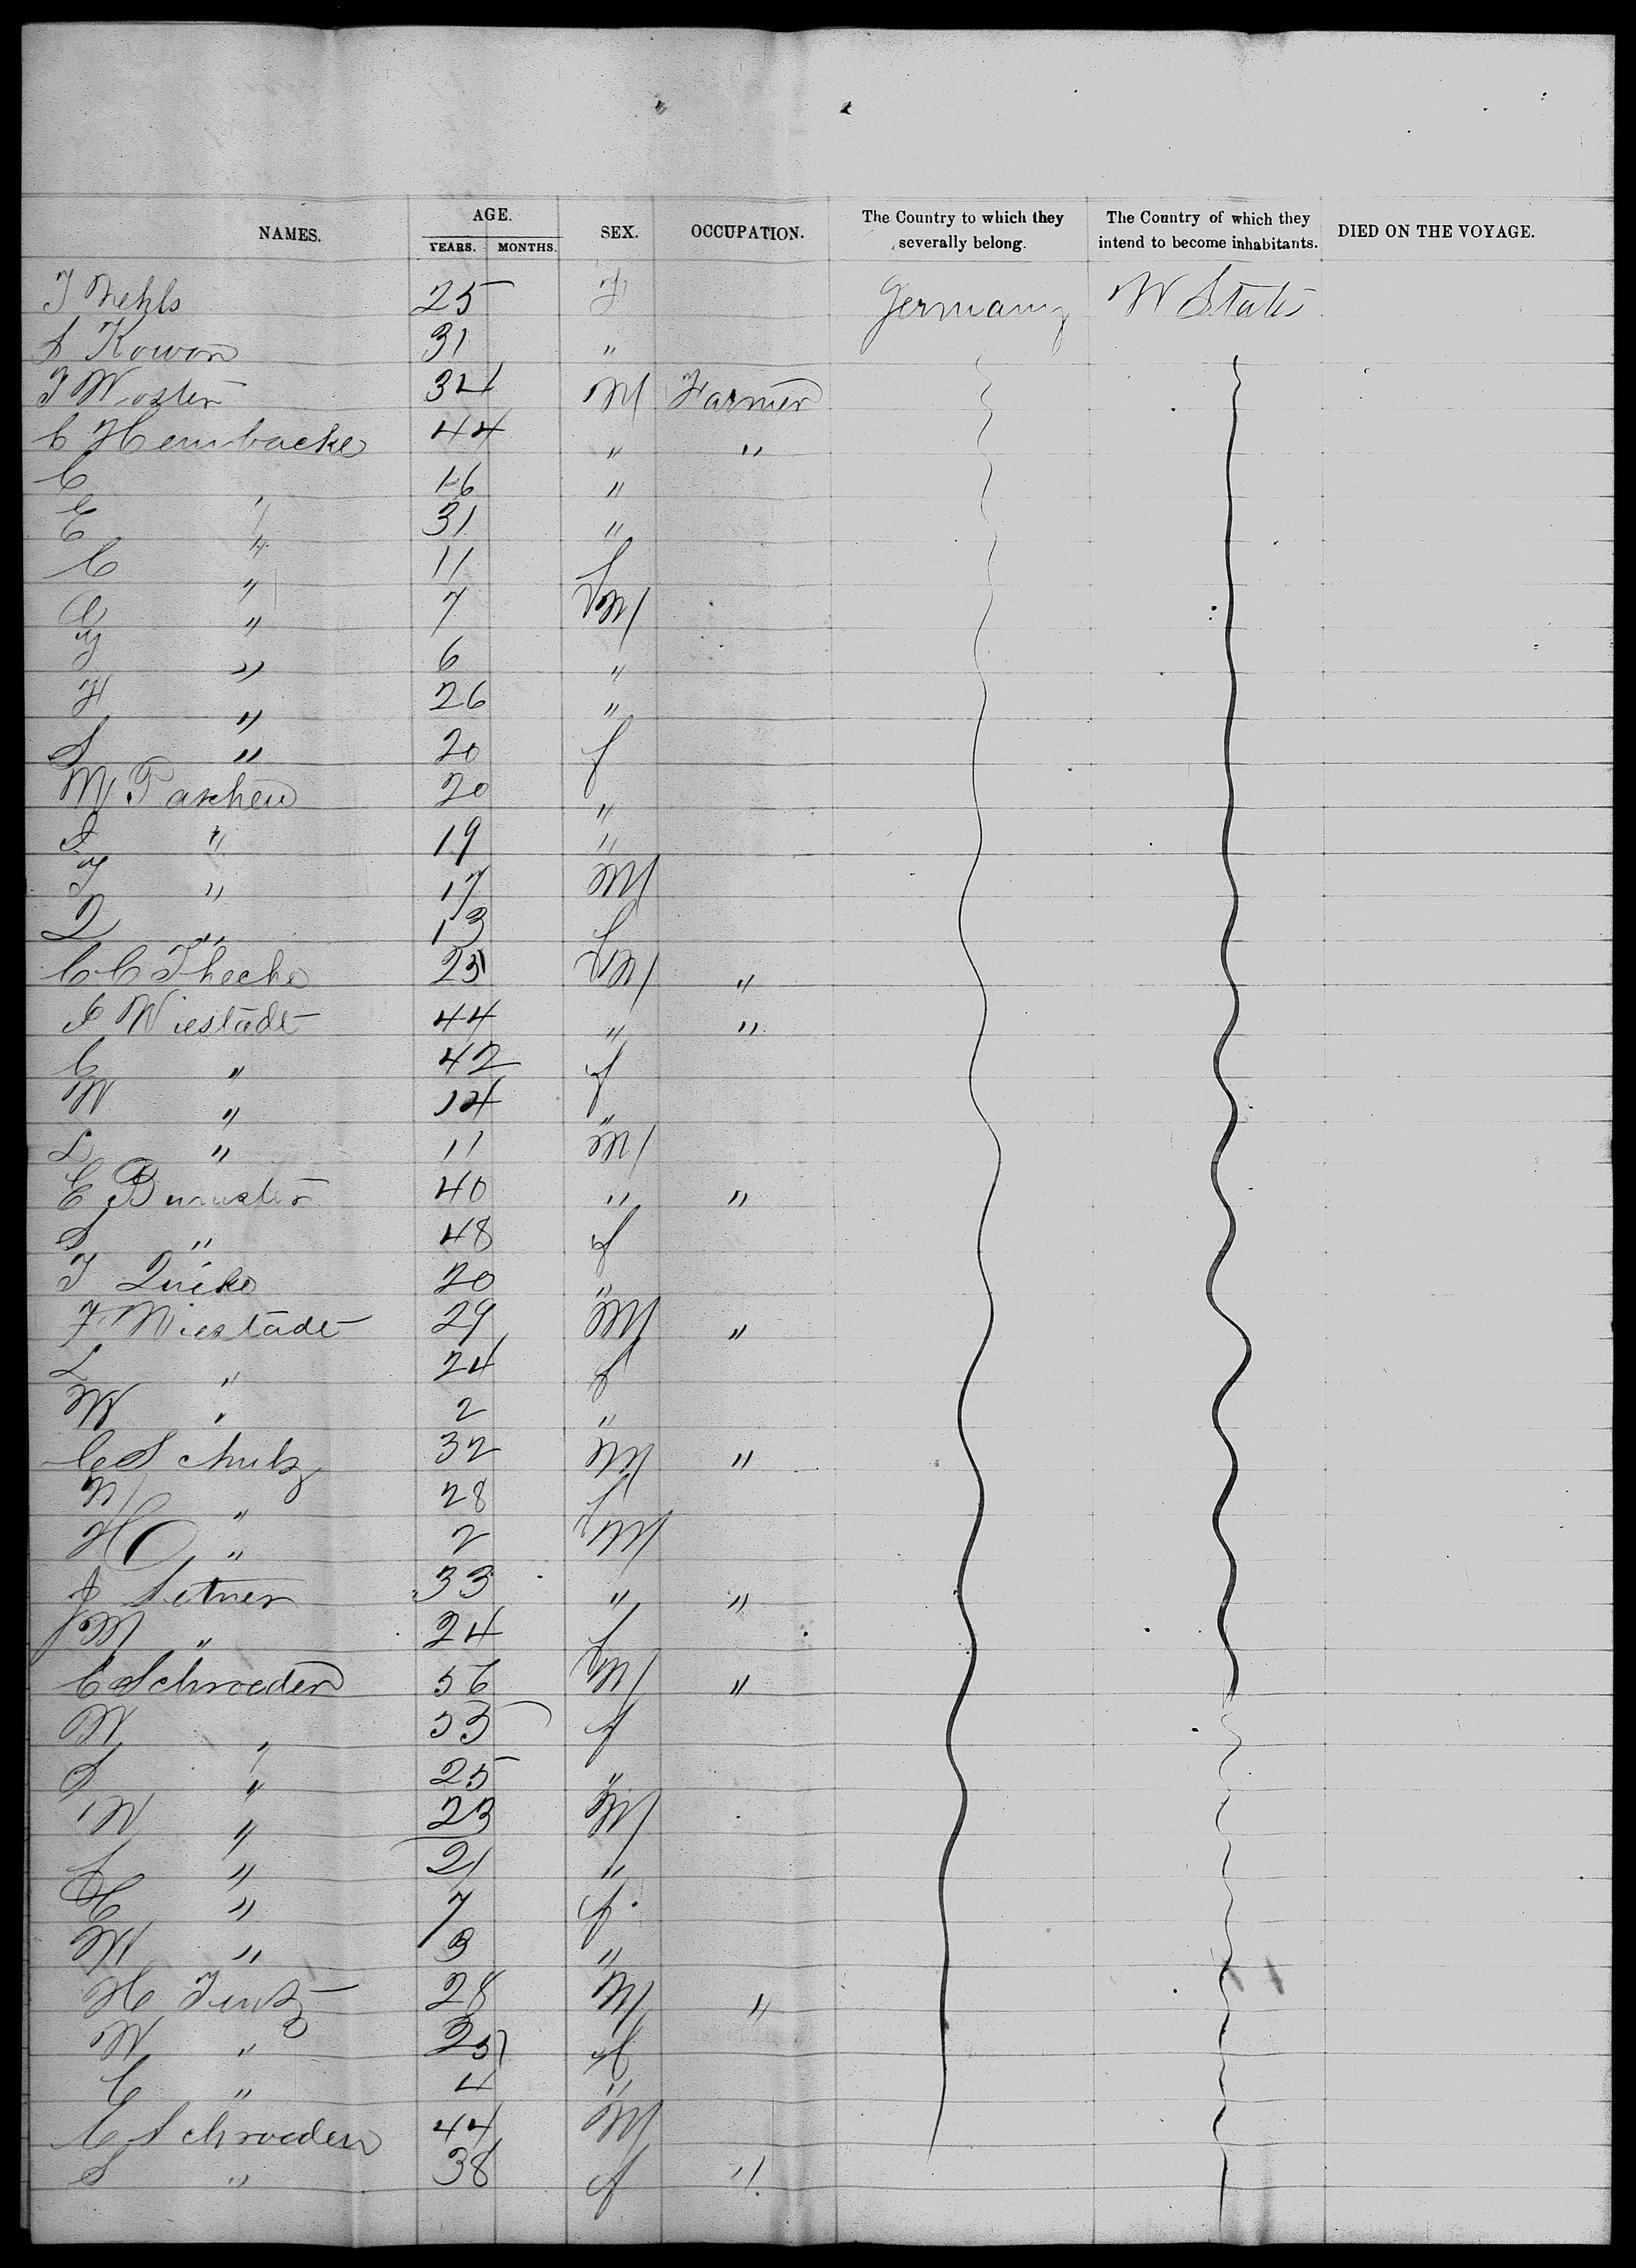 NAMES. AGE. SEX. OCCUPATION. The Country to which they severally belong. The Country of which they intend to become inhabitants. DIED ON THE VOYAGE.
YEARS. MONTHS.
J Nehls 25 F Germany W States
S Kowon 31 "
J Woster 34 M Farmer
C Hembacke 44 " "
C " 16 "
E " 31 "
C " 11 f
" 7 M
" 6 "
H " 26 "
S " 20 f
M Paschen 20 "
" 19 "
J " 17 M
D " 13 f
C C Thecke 25 M "
Wiestädt 44 " "
C " 42 f
W " 14 "
L " 11 M
E Burmster 40 " "
S " 48 f
J Quicke 20 "
F Wiestädt 29 M "
L " 24 f
W " 2 "
C Schulz 32 M "
" 28 f
H " 2 M
J Setner 33 " "
M " 24 f
C Schroeder 56 M "
W " 53 f
S " 25 "
W " 23 M
" 21 "
" 7 f
W " 3 "
H 28 M "
W " 25 f
C " 4 "
C Schroeder 44 M
S " 38 f "